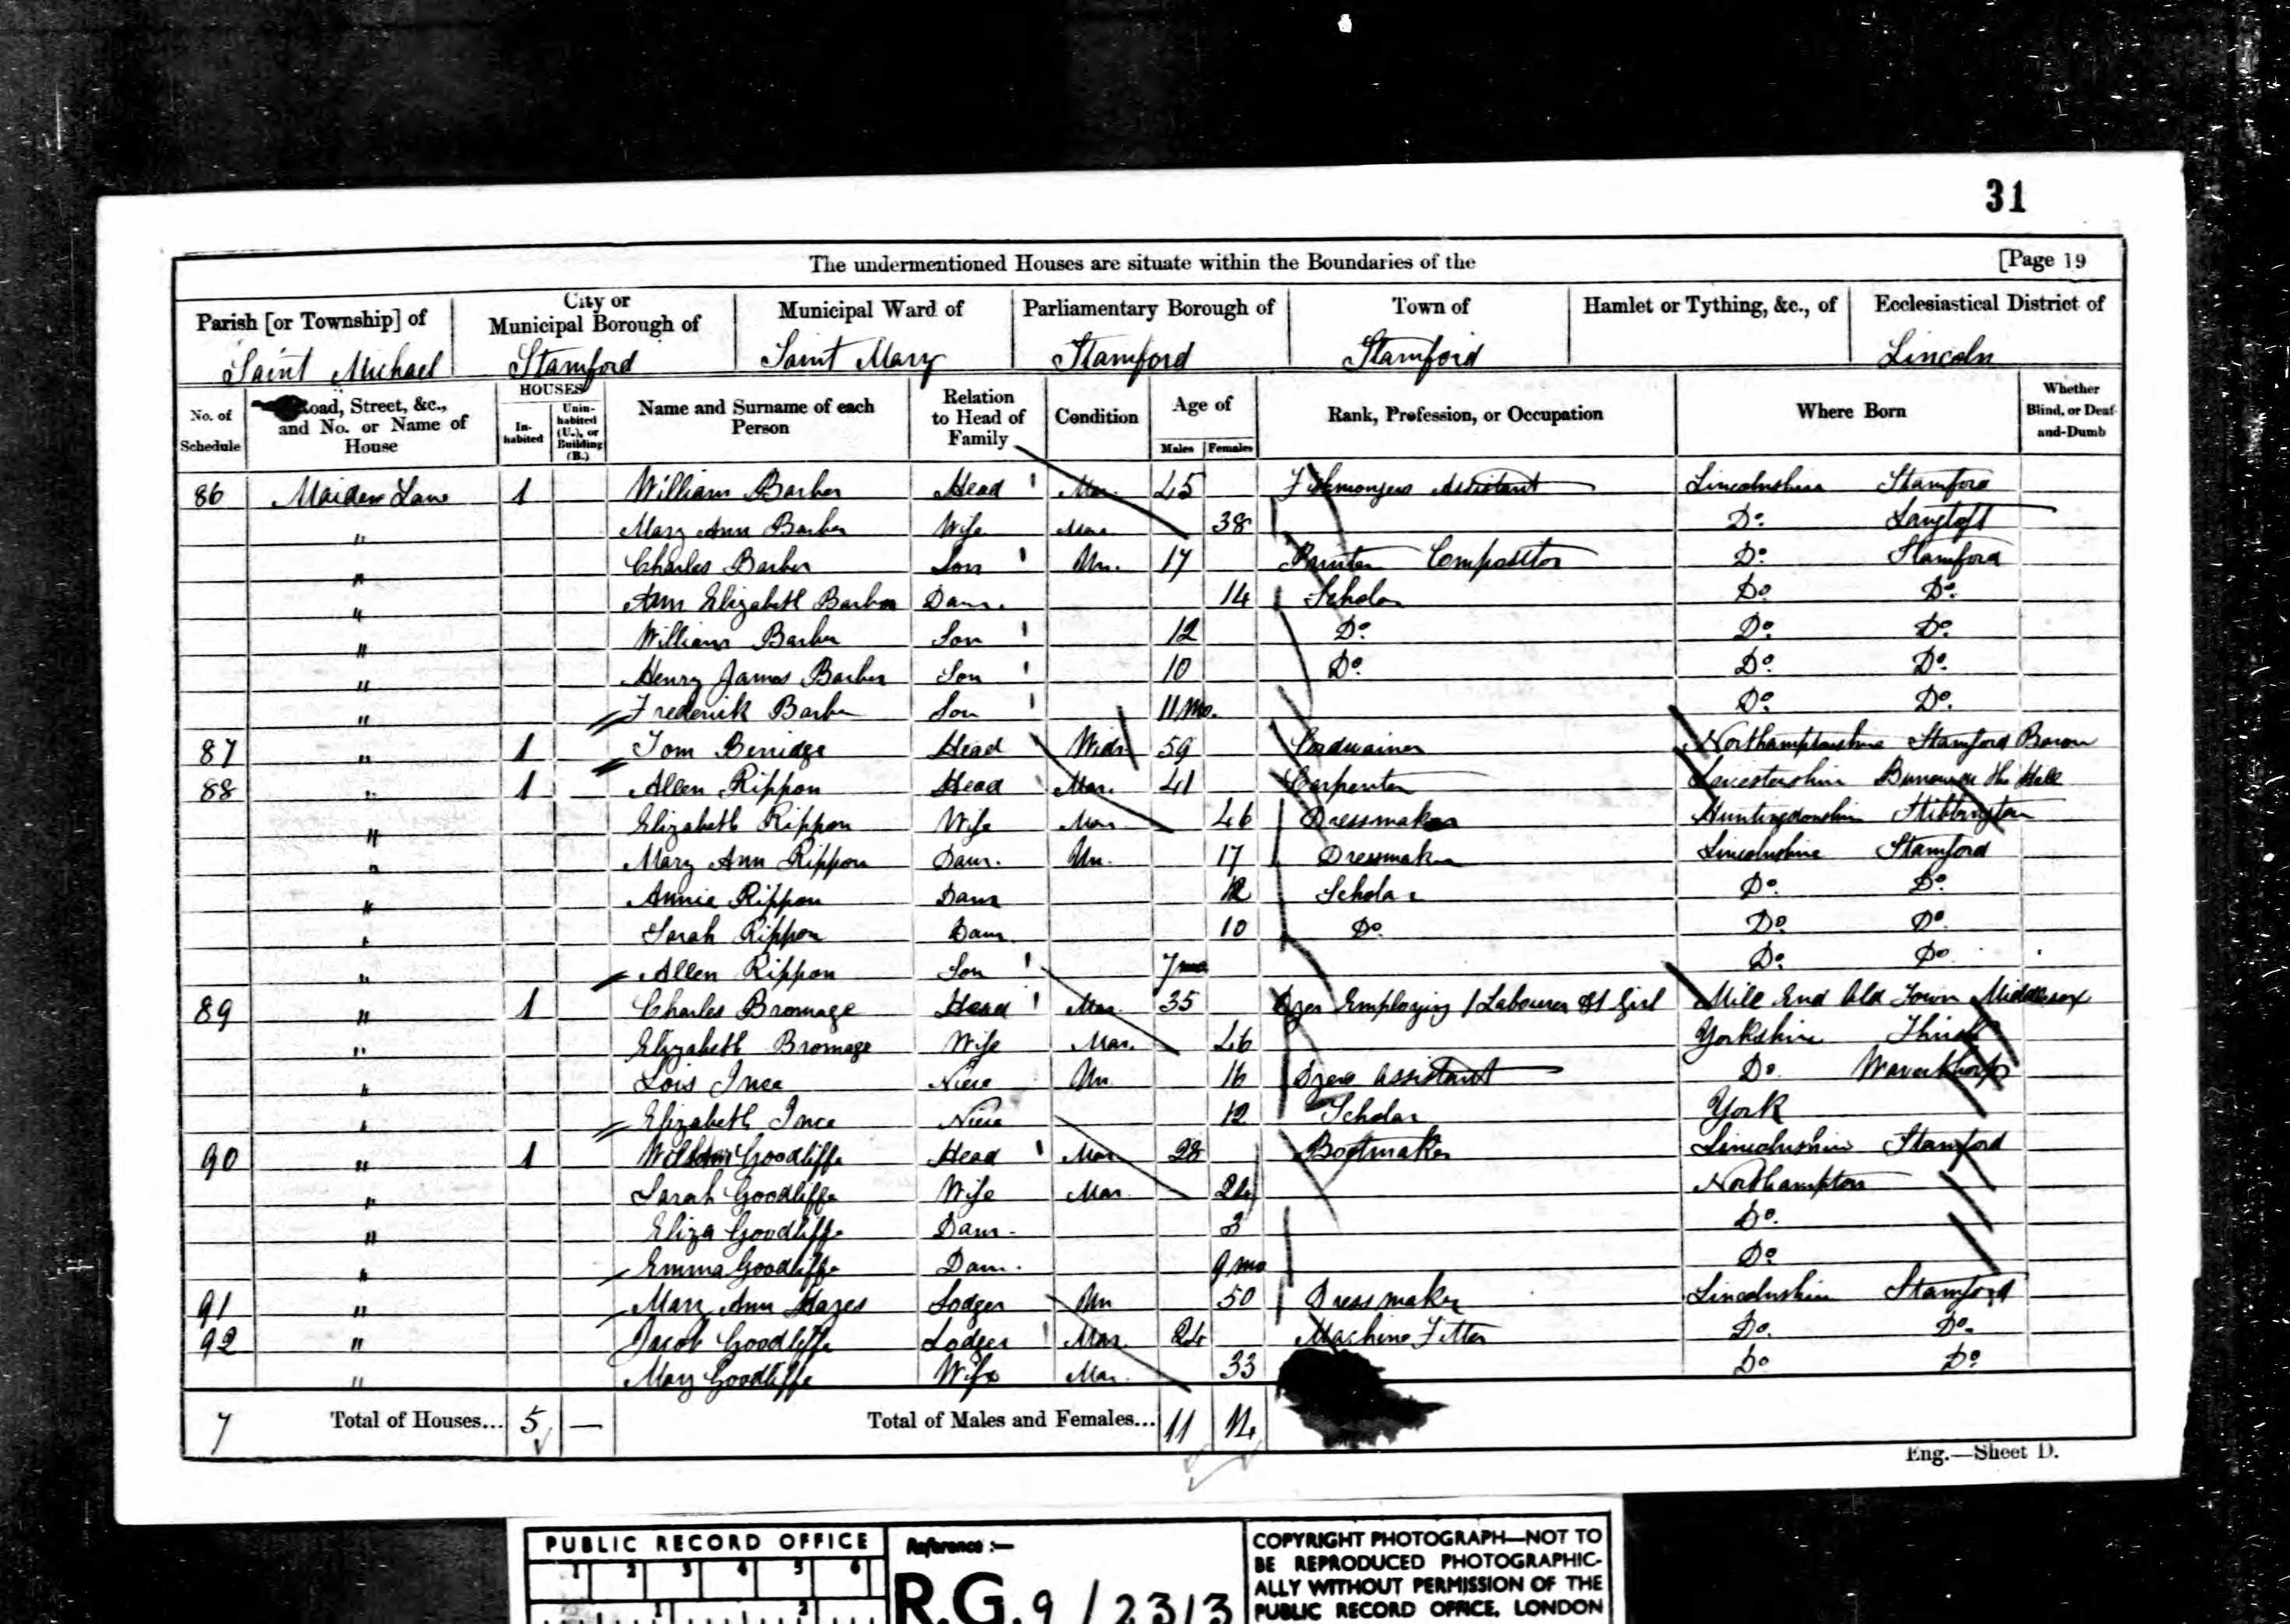 31
The undermentioned Houses are situate within the Boundaries of the [Page 19
Parish [or Township] of City or Municipal Borough of Municipal Ward of Parliamentary Borough of Town of Hamlet or Tything, &c., of Ecclesiastical District of
Saint Michael Stamford Saint Mary Stamford Stamford Lincoln
No. of Schedule Road, Street, &c., and No. or Name of House HOUSES In-habited Unin-habited (U.), or Building (B.) Name and Surname of each Person Relation to Head of Family Condition Age of Males Females Rank, Profession, or Occupation Where Born Whether Blind, or Deaf-and-Dumb
86 Maiden Lane 1 William Barber Head Mar. 45 Fishmongers Assistant Lincolnshire Stamford
" Mary Ann Barber Wife Mar. 38 Do. Langtoft
" Charles Barber Son Un. 17 Printer Compositor Do. Stamford
" Ann Elizabeth Barber Daur. 14 Scholar Do. Do.
" William Barber Son 12 Do. Do. Do.
" Henry James Barber Son 10 Do. Do. Do.
" Frederick Barber Son 11 Mo. Do. Do.
87 " 1 Tom Berridge Head Widr 59 Cordwainer Northamptonshire Stamford Baron
88 " 1 Allen Rippon Head Mar. 41 Carpenter Leicestershire the Hill
" Elizabeth Rippon Wife Mar 46 Dressmaker Huntingdonshire Stibbington
" Mary Ann Rippon Daur. Un. 17 Dressmaker Lincolnshire Stamford
" Annie Rippon Daur 12 Scholar Do. Do.
" Sarah Rippon Daur. 10 Do. Do. Do.
" Allen Rippon Son 7 mo Do. Do.
89 " 1 Charles Bromage Head Mar. 35 Dyer Employing 1 Labourer & 1 Girl Mile End Old Town Middlesex
" Elizabeth Bromage Wife Mar. 46 Yorkshire Thirsk
" Lois Ince Niece Un 16 Dyers Assistant Do.
" Elizabeth Ince Niece 12 Scholar York
90 " 1 Goodliffe Head Mar 28 Bootmaker Lincolnshire Stamford
" Sarah Goodliffe Wife Mar. 24 Northampton
" Eliza Goodliffe Daur. 3 Do.
" Emma Goodliffe Daur. 9 mo Do.
91 " Mary Ann Hayes Lodger Un 50 Dressmaker Lincolnshire Stamford
92 " Jacob Goodliffe Lodger Mar. 24 Machine Fitter Do. Do.
" Mary Goodliffe Wife Mar. 33 Do. Do.
7 Total of Houses... 5 — Total of Males and Females... 11 14
Eng.—Sheet D.
PUBLIC RECORD OFFICE
1 2 3 4 5 6
1 2
Reference :—
R.G. 9 / 2313
COPYRIGHT PHOTOGRAPH—NOT TO
BE REPRODUCED PHOTOGRAPHIC-
ALLY WITHOUT PERMISSION OF THE
PUBLIC RECORD OFFICE, LONDON